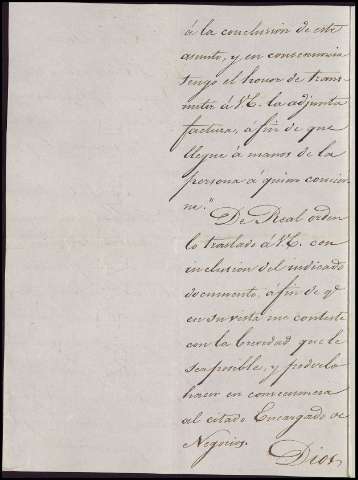 á la conclusion de este
asunto, y en consecuencia
tengo el honor de tras-
mitir á V.E. la adjunta
factura, á fin de que
llegue á manos de la
persona á quien convie-
ne."
De Real orden
lo traslado á V.E. con
inclusion del indicado
documento, á fin de qe
en su vista me conteste
con la brevedad que le
sea posible, y poderlo
hacer en consecuencia
al citado Encargado de
Negocios.
Dios